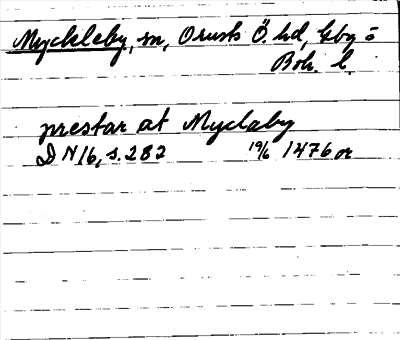 Myckleby, sn, Orusts Ö. hd, Gbg o
Boh. l.
prestar at Myclaby
DN 16, s. 282 19/6 1476 or